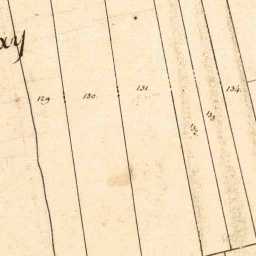 ay
129
130.
131.
132
133
134.